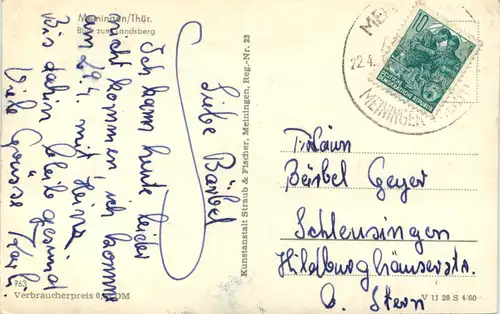 Meiningen/Thür.
Blick zum Landsberg
Liebe Bärbel
Ich kann heute leider
nicht kommen, ich komme
am 29.4. mit Heinz
Bis dahin bleib gesund
Viele Grüsse Karli
763
Verbraucherpreis 0, DM
Kunstanstalt Straub & Fischer, Meiningen, Reg.-Nr. 23
22.4.
MEININGEN
10
Bärbel Geyer
Schleusingen
Hildburghäuserstr.
b. Stern
V 11 28 S 4/60